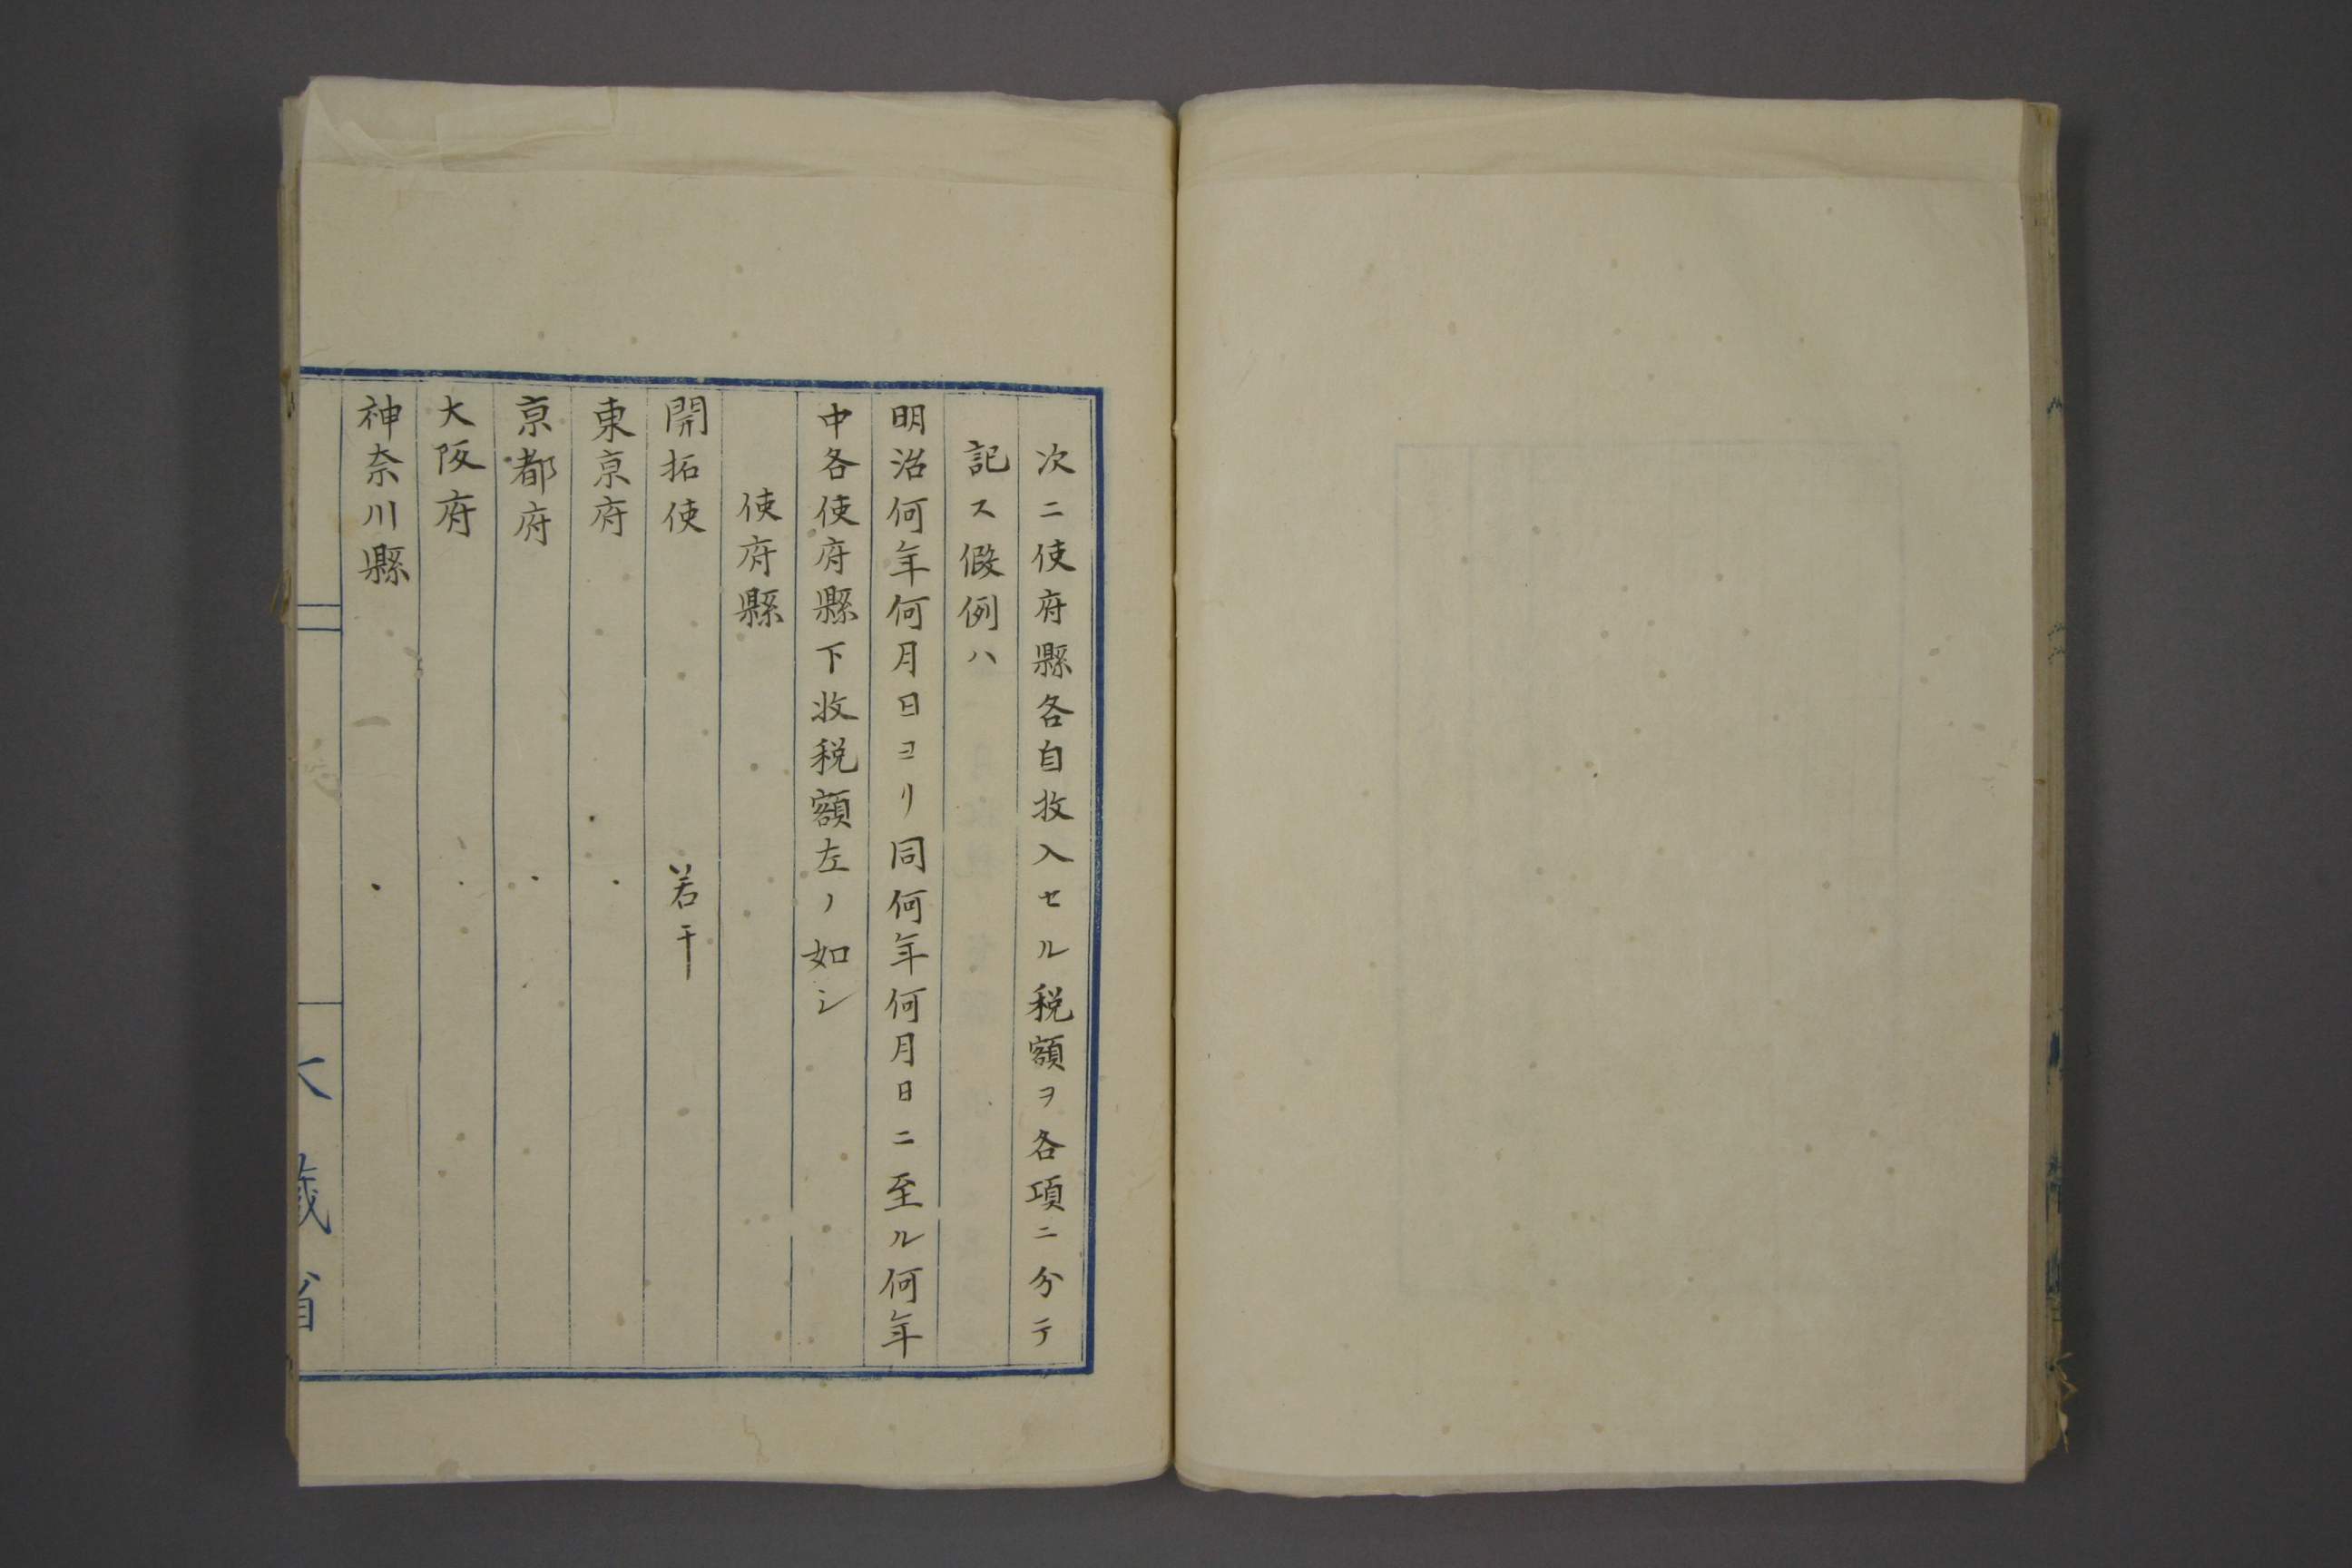 次ニ使府縣各自收入セル税額ヲ各項ニ分テ
記ス假例ハ
明治何年何月日ヨリ同何年何月日ニ至ル何年
中各使府縣下收税額左ノ如シ
使府縣
開拓使 若干
東京府 .
京都府 .
大阪府 .
神奈川縣 .
大藏省